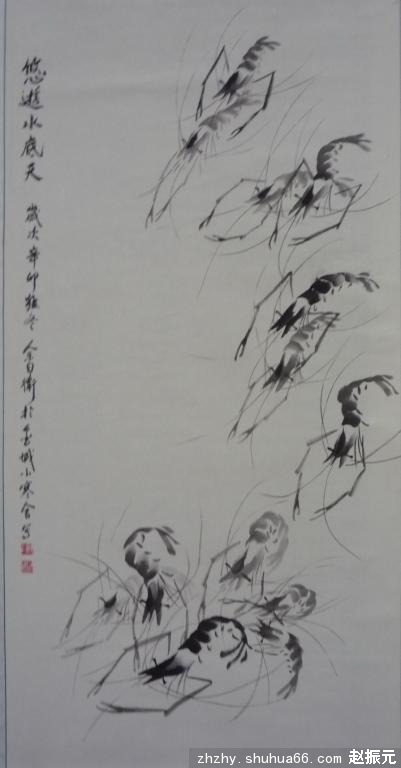 悠遊水底天 歲次辛卯 於金城小寒舍写
zhzhy.shuhua66.com 赵振元